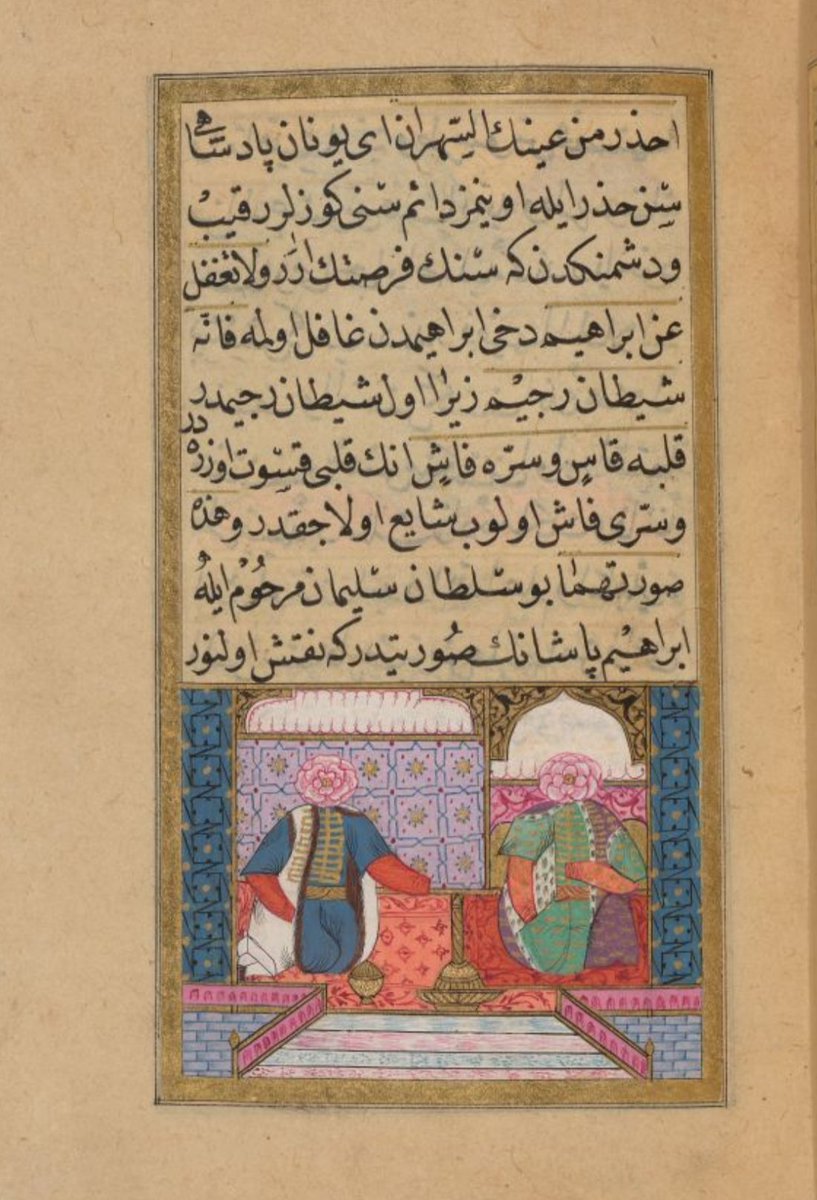 احذر من عينك السهران ای یونان پادشاهی
سن حذر ایله اوینمز دائم سنی کوزلر رقیب
ودشمنکدن که سنك فرصتك ارر ولا تغفل
عن ابراهیم دخی ابراهیمدن غافل اولمه فانه
شیطان رجیم زیرا اول شیطان رجیمدر
قلبه قاسٍ وسرّه فاشٍ انك قلبی قسوت اوزره در
وسرّی فاش اولوب شایع اولاجقدر وهذه
صورتهما بو سلطان سلیمان مرحُوْم ایله
ابراهیْم پاشانك صُورتیدر که نقش اولنور